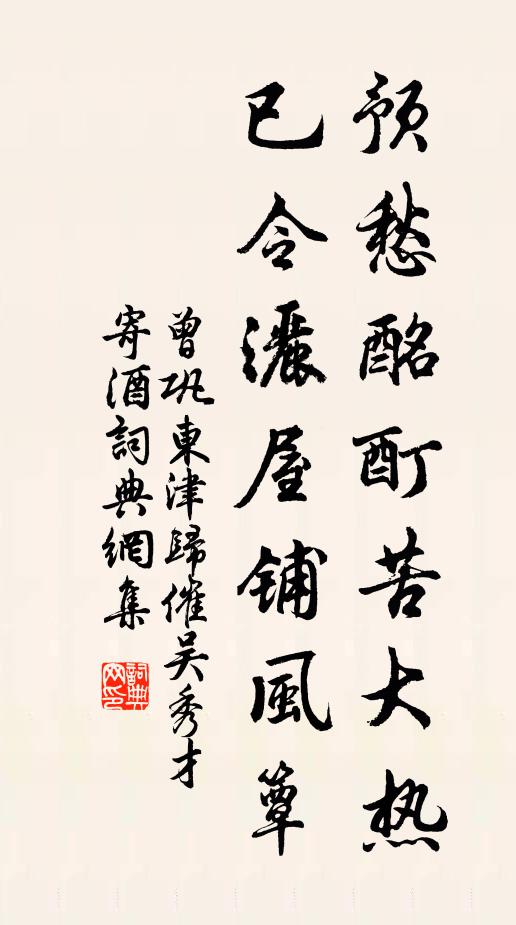 预愁酩酊苦大热
已令灑屋铺風簟
曾巩東津歸催吴秀才
寄酒詞典網集
詞典網印